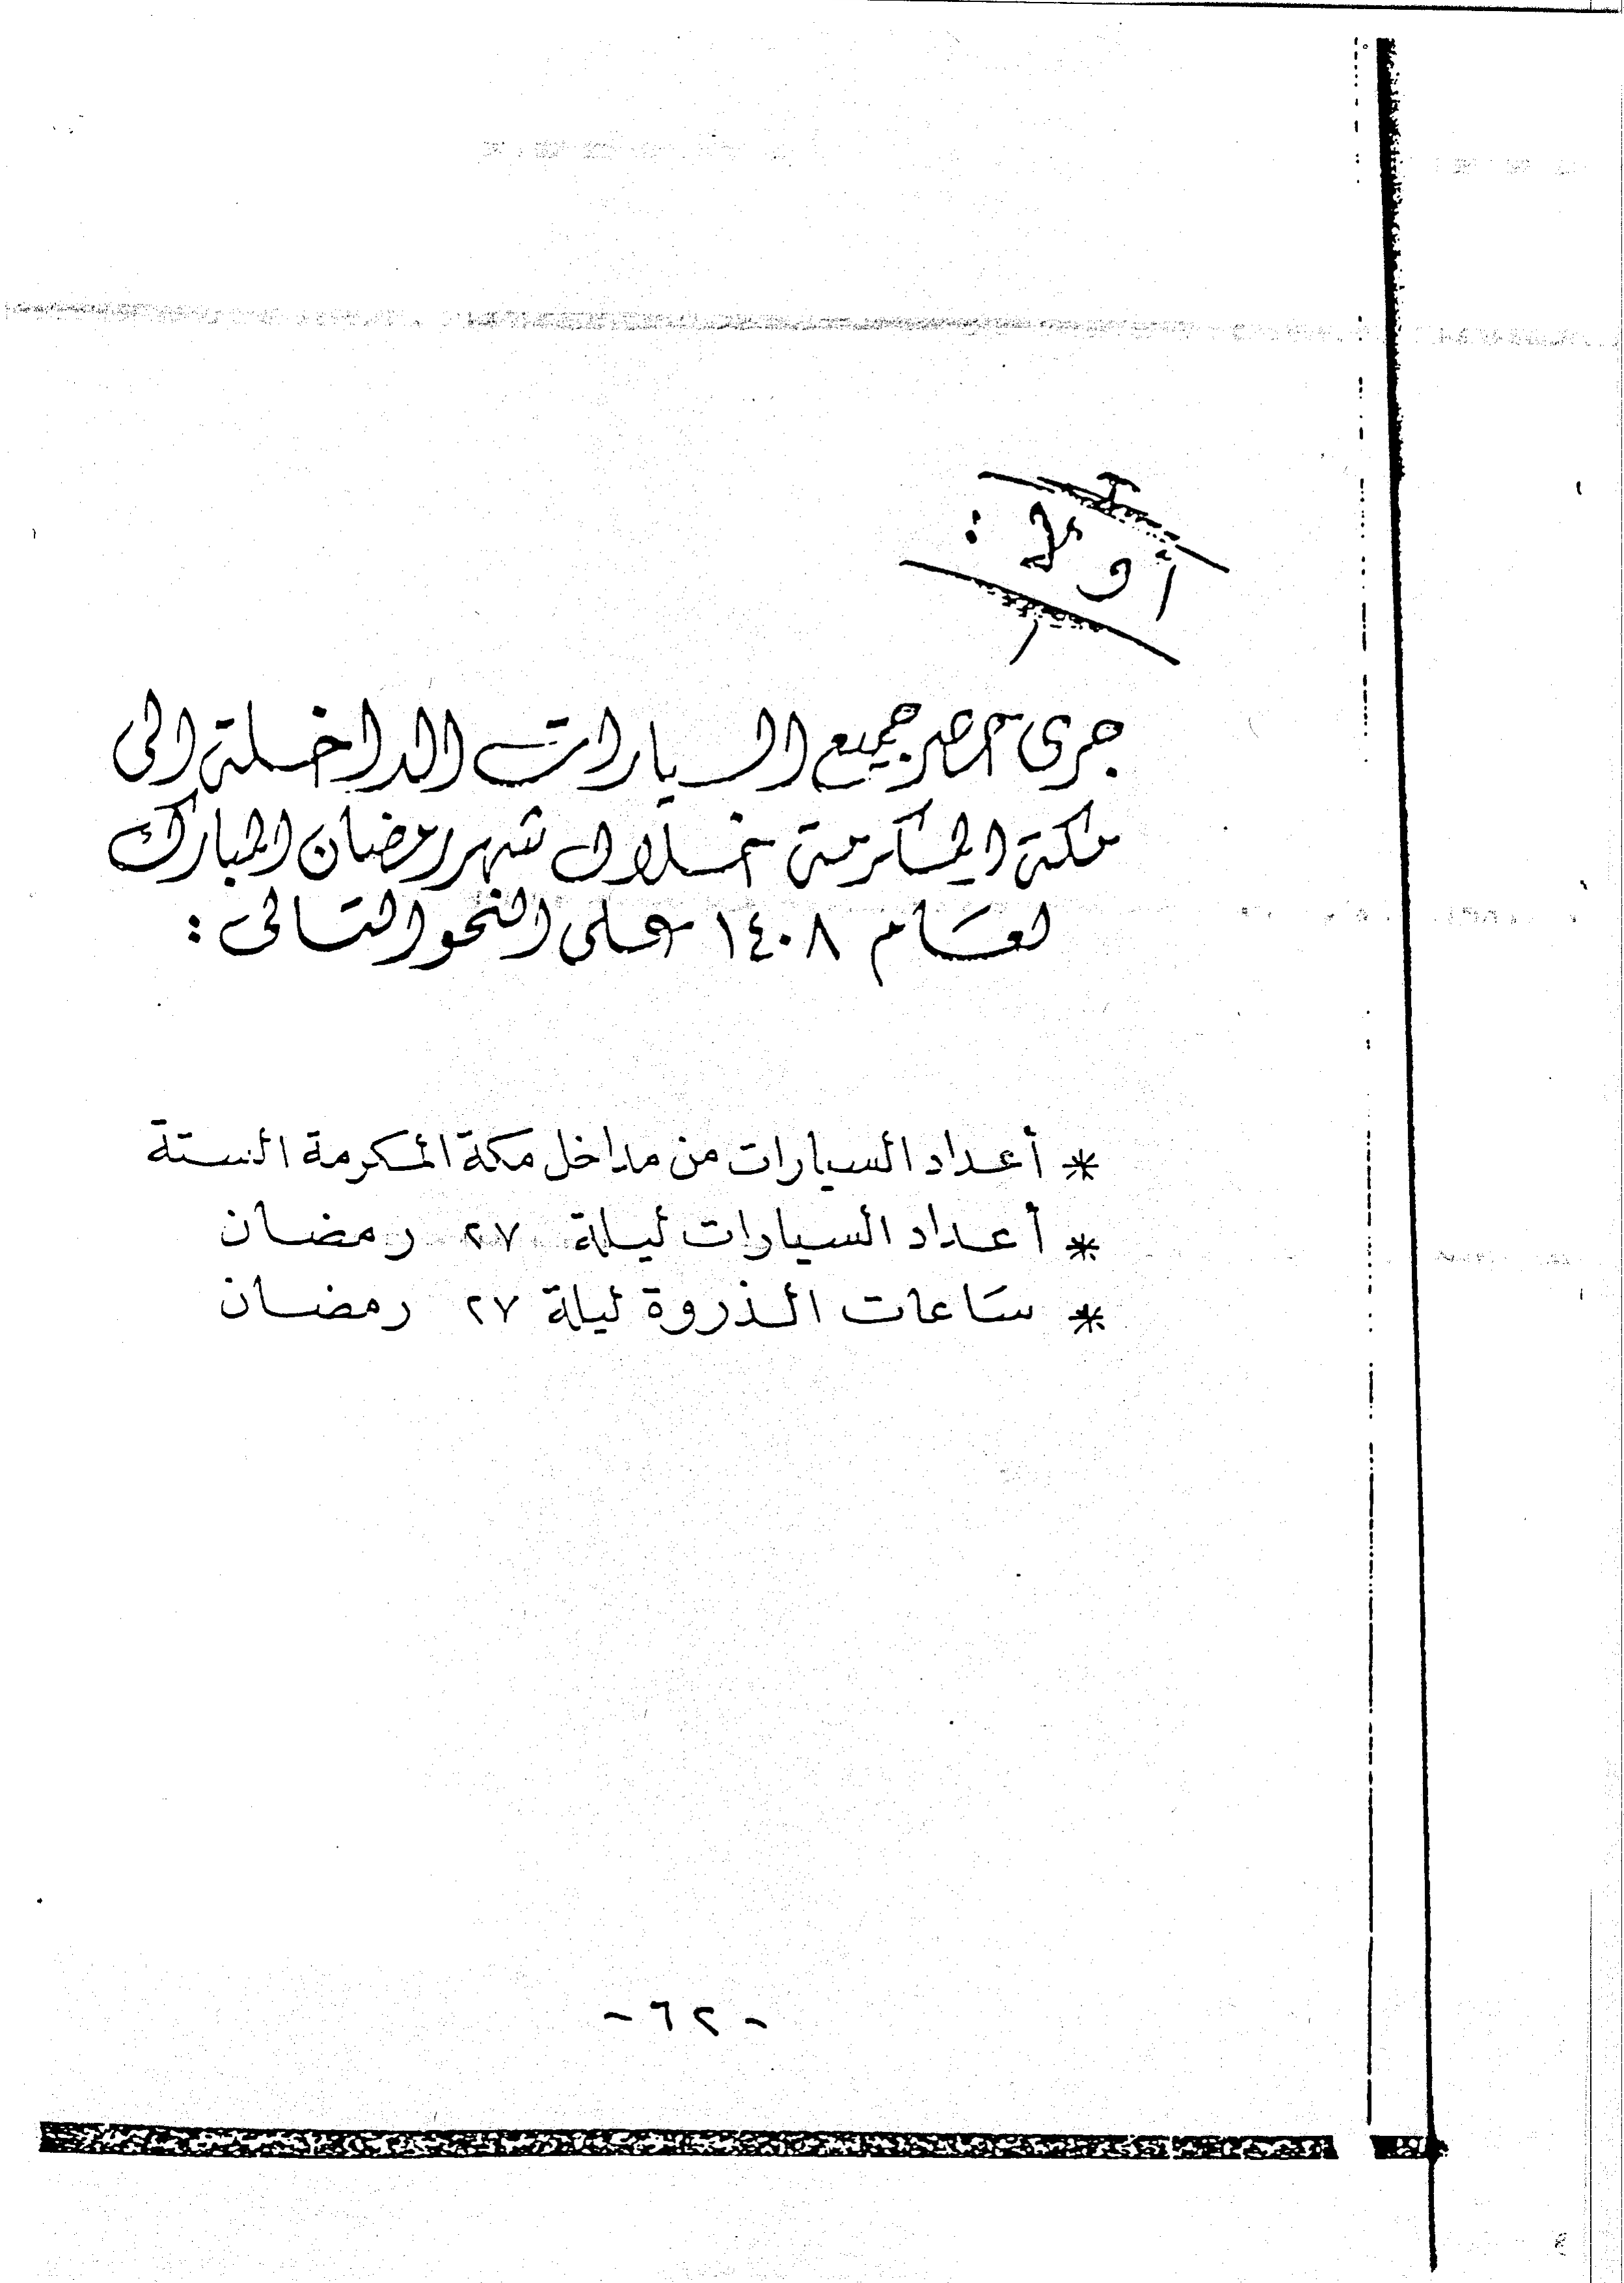 أولاً :
جرى حصر جميع السيارات الداخلة الى
مكة المكرمة خلال شهر رمضان المبارك
لعام ١٤٠٨ على النحو التالى :
* أعداد السيارات من مداخل مكة المكرمة الستة
* أعداد السيارات ليلة ٢٧ رمضان
* ساعات الذروة ليلة ٢٧ رمضان
- ٦٢ -